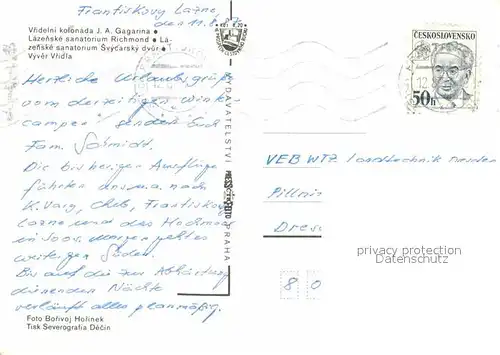 Františkovy Lázne,
den 11.8.
Vřídelní kolonáda J. A. Gagarina ●
Lázeňské sanatorium Richmond ● Lá-
zeňské sanatorium Švýcarský dvůr ●
Vyvěr Vřídla
Herzliche Urlaubsgrüße
vom derzeitigen
camper senden Euch
Fam. Schmidt.
Die bisherigen Ausflüge
führten uns u.a. nach
K. Vary, Cheb, Frantiskovy
Lazne und das Hochmoor
in Soos. Morgen geht es
weitergen Süden.
Bis auf die zur Abhärtung
dienenden Nächte
verläuft alles planmäßig.
Foto Bořivoj Hořínek
Tisk Severografia Děčín
VYDAVATELSTVÍ
PRAHA
ČESKOSLOVENSKO
50h
VEB WTZ Landtechnik
Pillni
Dres
privacy protection
Datenschutz
8 0